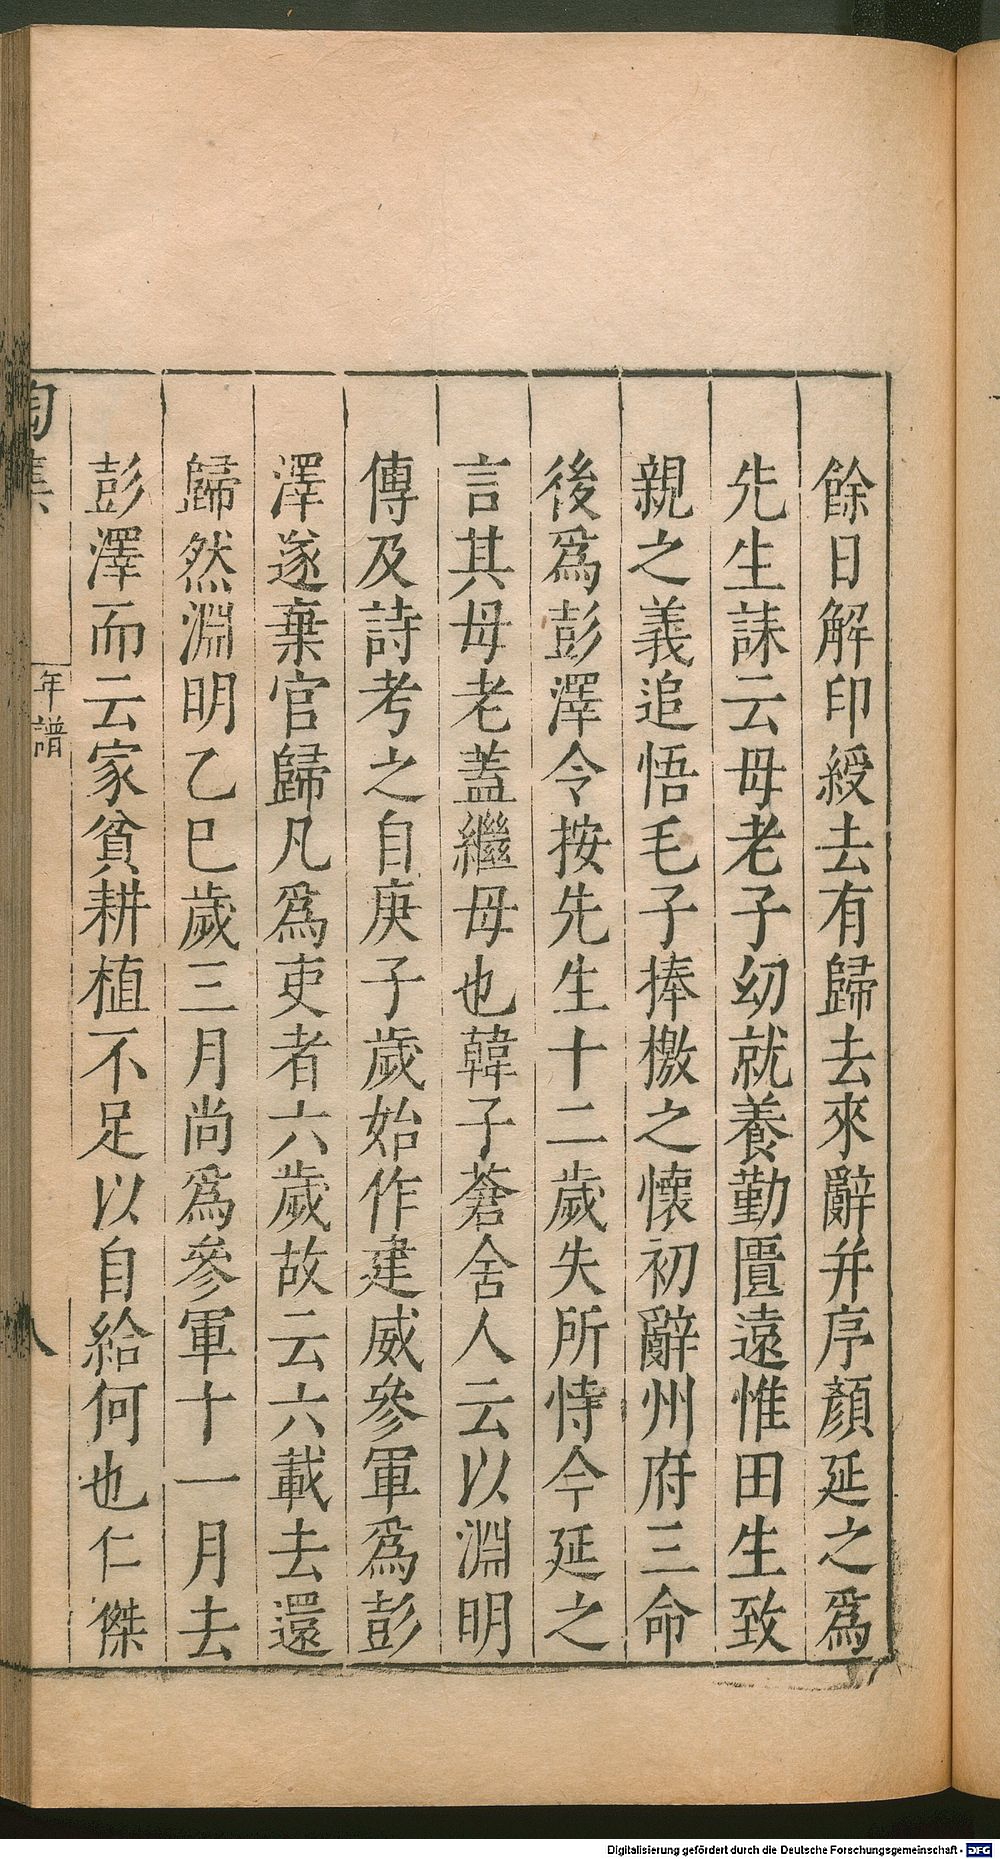 餘日解印綬去有歸去來辭并序顏延之爲
先生誄云母老子幼就養勤匱遠惟田生致
親之義追悟毛子捧檄之懷初辭州府三命
後爲彭澤令按先生十二歲失所恃今延之
言其母老蓋繼母也韓子蒼舍人云以淵明
傳及詩考之自庚子歲始作建威參軍爲彭
澤遂棄官歸凡爲吏者六歲故云六載去還
歸然淵明乙巳歲三月尚爲參軍十一月去
彭澤而云家貧耕植不足以自給何也仁傑
陶集
年譜
八
Digitalisierung gefördert durch die Deutsche Forschungsgemeinschaft - DFG